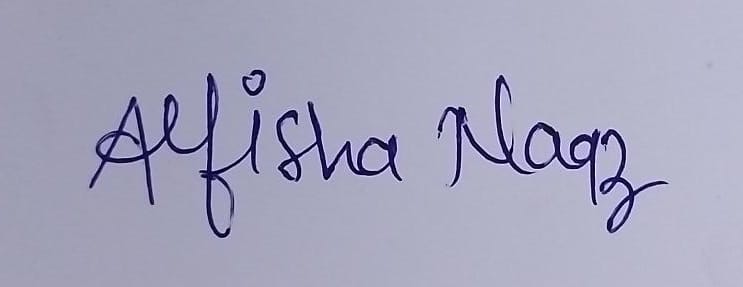 Alfisha Naaz